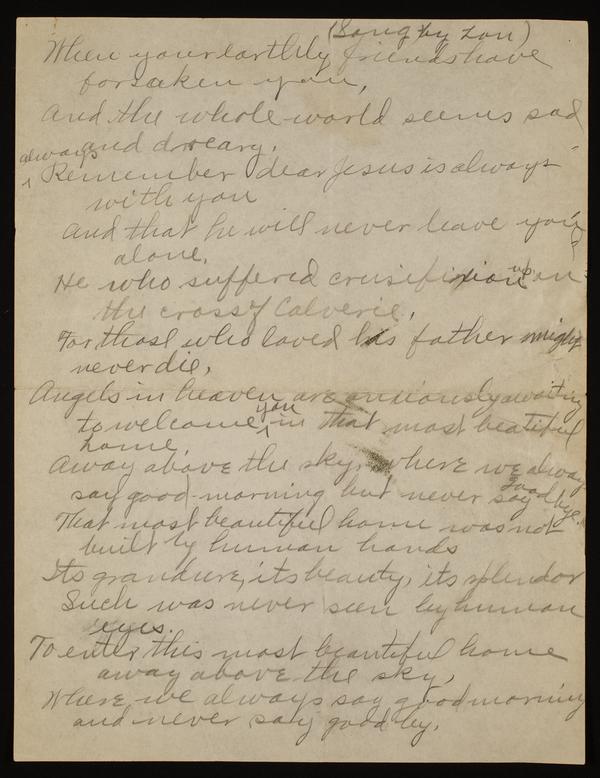 (Song by Lon)
When your earthly friends have
forsaken you,
And the whole world seems sad
and dreary.
always Remember dear Jesus is always
with you
And that he will never leave you
alone.
He who suffered crusifixion up on
the cross of Calverie,
For those who loved his father might
never die,
Angels in heaven are anxiously awaiting
to welcome you in that most beatiful
home.
Away above the sky, where we always
say good-morning but never say good bye.
That most beautiful home was not
built by human hands
Its grandure, its beauty, its splendor
Such was never seen by human
eyes.
To enter this most beautiful home
away above the sky,
Where we always say goodmorning
and never say good by.